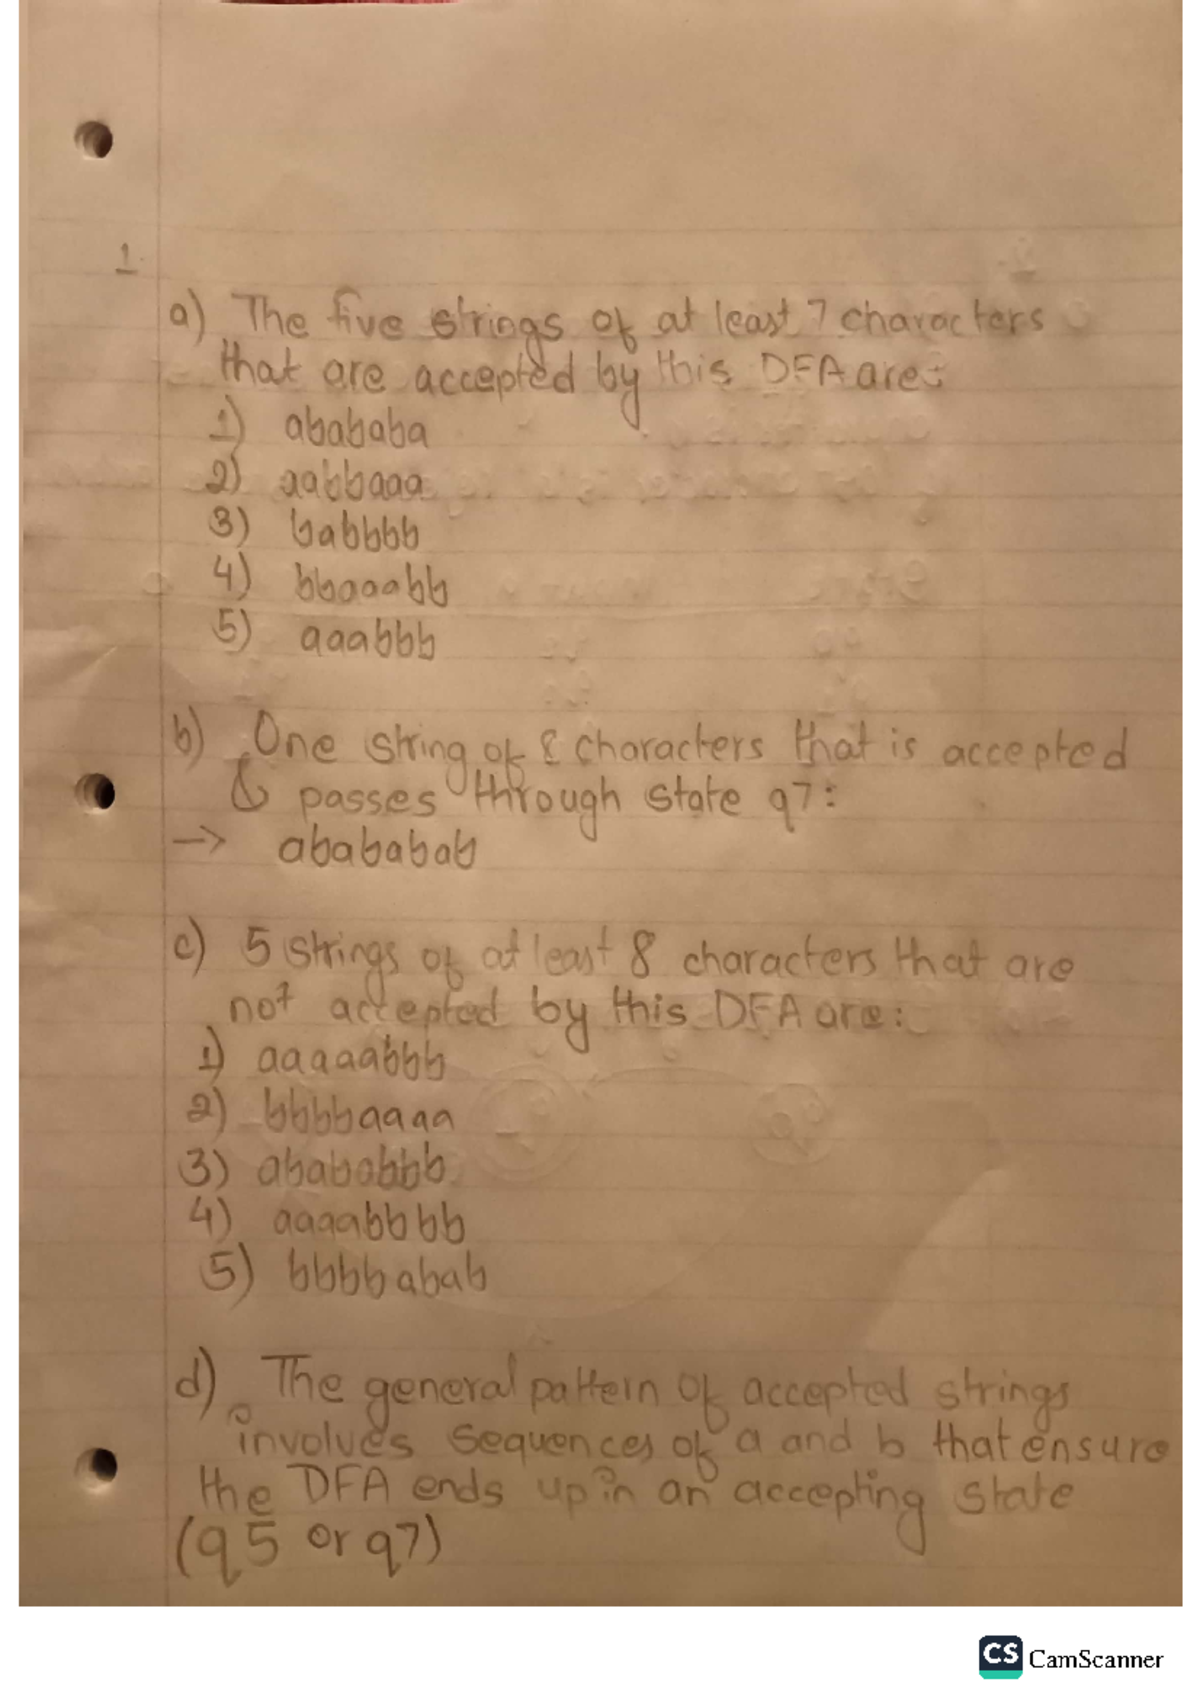 1.
a) The five strings of at least 7 characters
that are accepted by this DFA are:
1) abababa
2) aabbaaa
3) babbbb
4) bbaaabb
5) aaabbb
b) One string of 8 characters that is accepted
& passes through state q7:
-> abababab
c) 5 strings of at least 8 characters that are
not accepted by this DFA are:
1) aaaaabbb
2) bbbbaaaa
3) abababbb
4) aaaabbbb
5) bbbbabab
d) The general pattern of accepted strings
involves sequences of a and b that ensure
the DFA ends up in an accepting state
(q5 or q7)
CS CamScanner